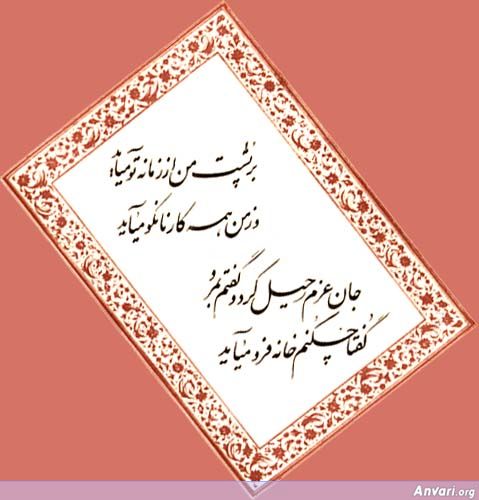 بر پشت من از زمانه تو میآید
وز من همه کار نانکو میآید
جان عزم رحیل کرد و گفتم بمرو
گفتا چکنم خانه فرو میآید
Anvari.org